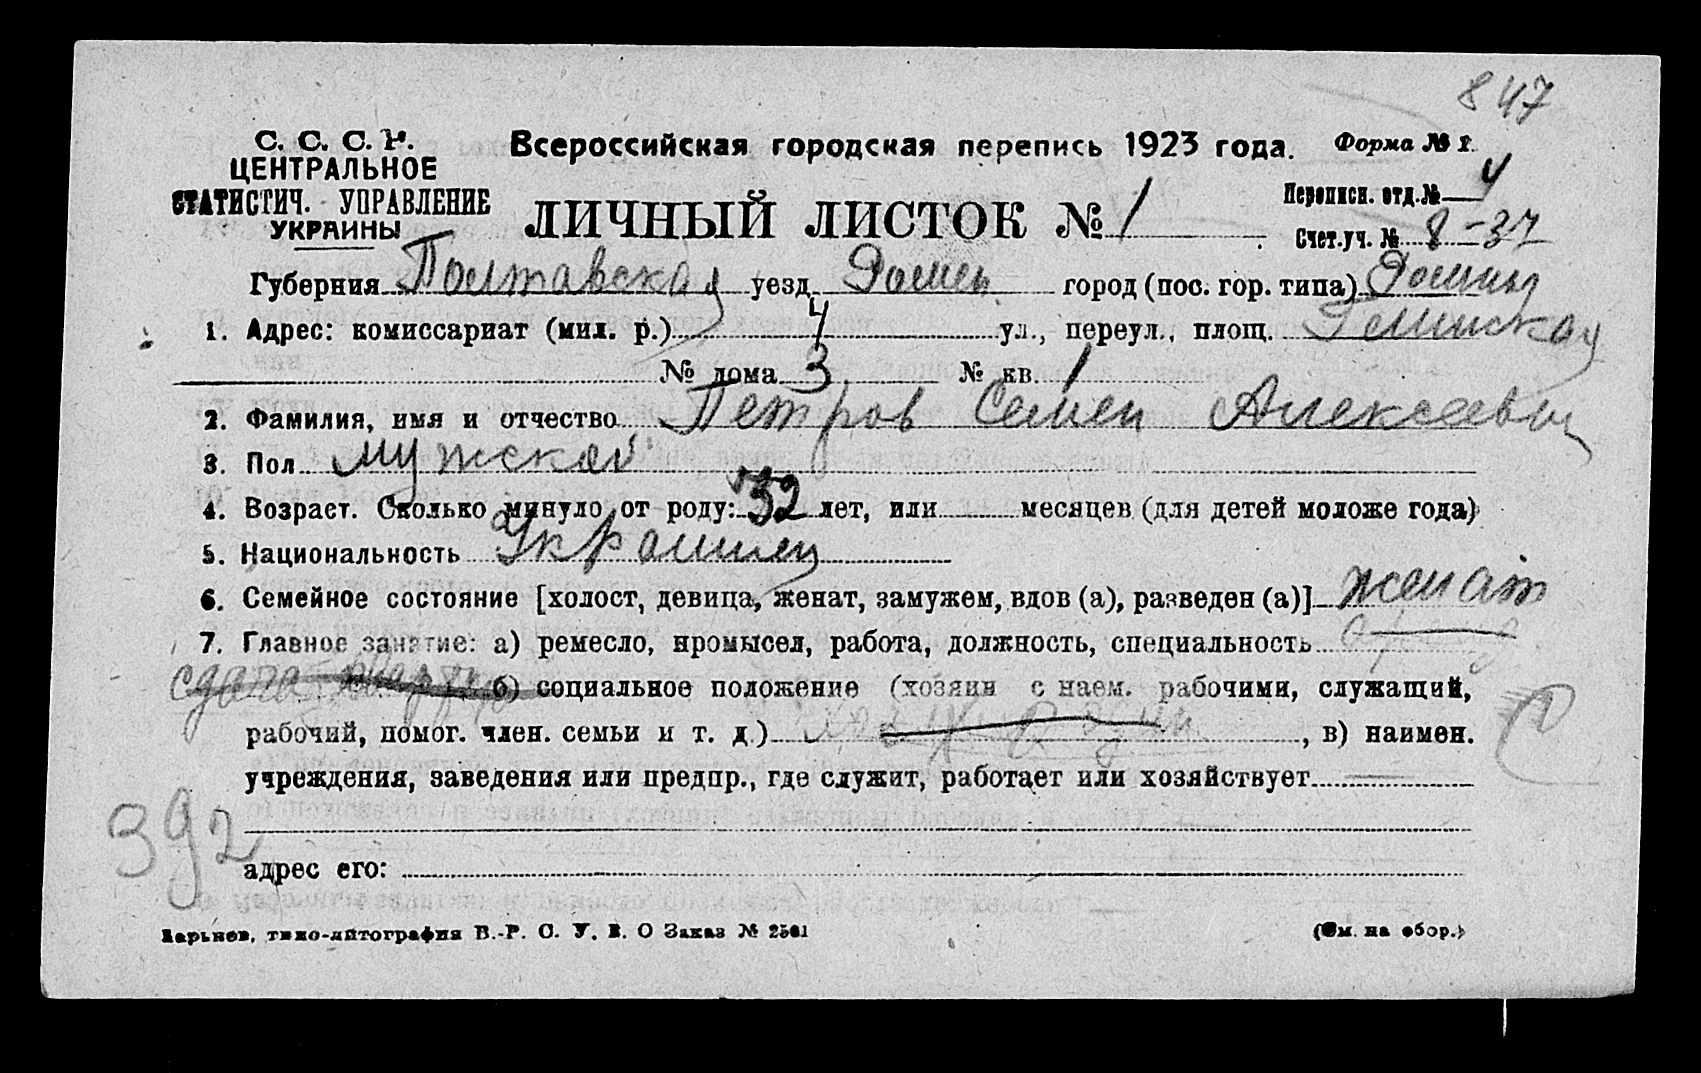 847
С. С. С. Р. Всероссийская городская перепись 1923 года. Форма № 1.
ЦЕНТРАЛЬНОЕ
СТАТИСТИЧ. УПРАВЛЕНИЕ
УКРАИНЫ
ЛИЧНЫЙ ЛИСТОК № 1
Переписн. отд. № 4
Счет. уч. № 8-37
Губерния Полтавская уезд Ромен город (пос. гор. типа) Ромны
1. Адрес: комиссариат (мил. р.) 4 ул., переул., площ.
№ дома 3 № кв. 1
2. Фамилия, имя и отчество Петров Семен Алексеевич
3. Пол мужской
4. Возраст. Сколько минуло от роду: 32 лет, или месяцев (для детей моложе года)
5. Национальность Украинец
6. Семейное состояние [холост, девица, женат, замужем, вдов (а), разведен (а)] женат
7. Главное занятие: а) ремесло, промысел, работа, должность, специальность
сдача б) социальное положение (хозяин с наем. рабочими, служащий,
рабочий, помог. член. семьи и т. д.) , в) наимен.
учреждения, заведения или предпр., где служит, работает или хозяйствует
392
адрес его:
Харьков, типо-литография В.-Р. С. У. В. О Заказ № 2501 (См. на обор.)